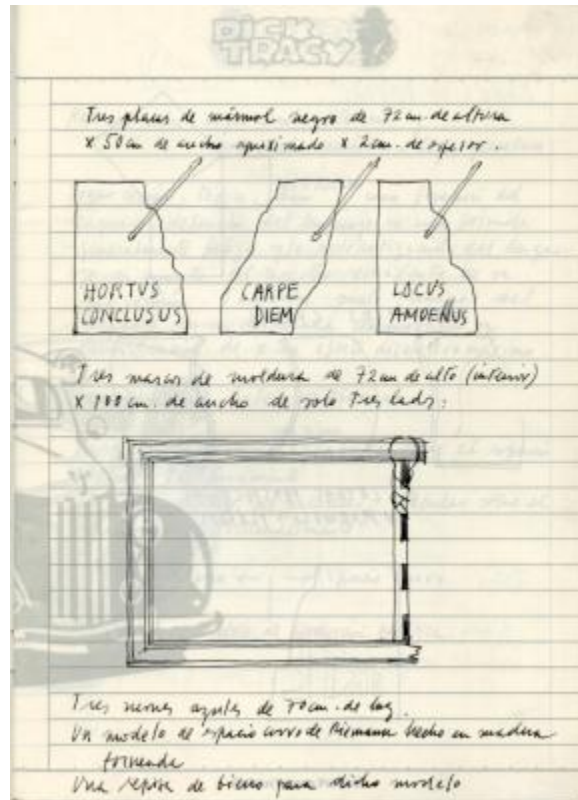 DICK
TRACY
Tres placas de mármol negro de 72 cm. de altura
x 50 cm de ancho aproximado x 2 cm. de espesor.
HORTVS
CONCLUSUS
CARPE
DIEM
LOCVS
AMOENUS
Tres marcos de moldura de 72 cm de alto (interior)
x 100 cm. de ancho de solo tres lados:
Tres neones azules de 70 cm. de
Un modelo de espacio curvo de Riemann hecho en madera
torneada
Una repisa de hierro para dicho modelo